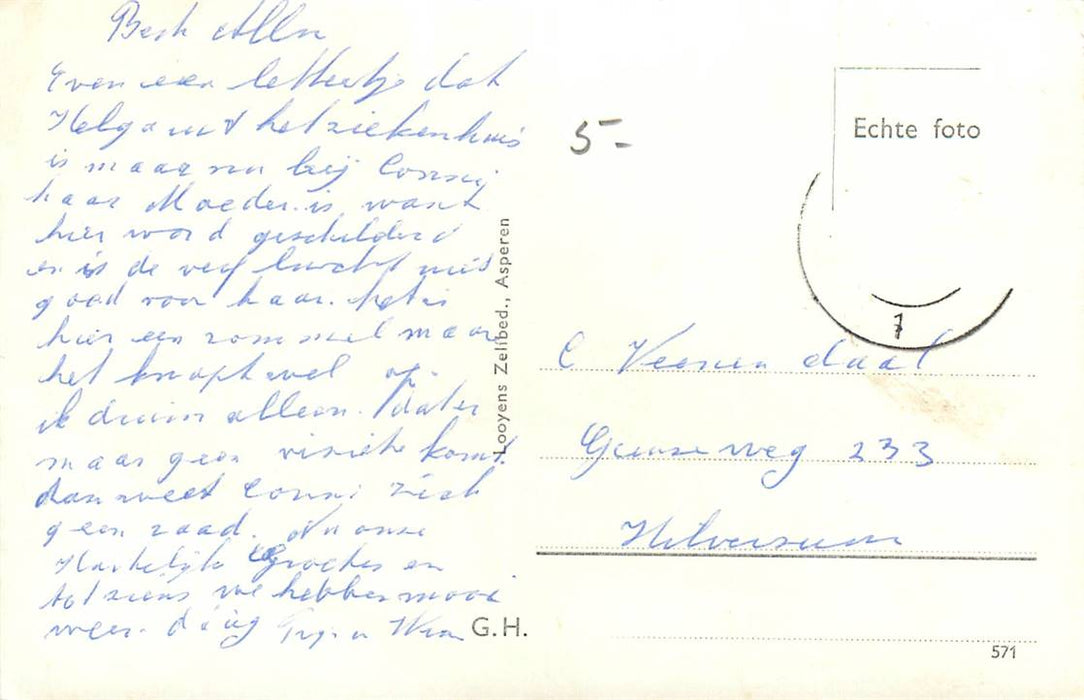 Even een lettertje dat
Helga uit het ziekenhuis
is maar nu bij Conny
haar Moeder is want
hier word geschilderd
en is de verf lucht niet
goed voor haar. het is
hier een rommel maar
het knapt wel op.
ik alleen. dat er
maar geen visite komt
dan weet Conni zich
geen raad. Nu onze
Hartelijke Groetjes en
tot ziens we hebben mooi
weer. dag
Looyens Zelfbed., Asperen
G.H.
5-
Echte foto
7
C Veenendaal
233
Hilversum
571